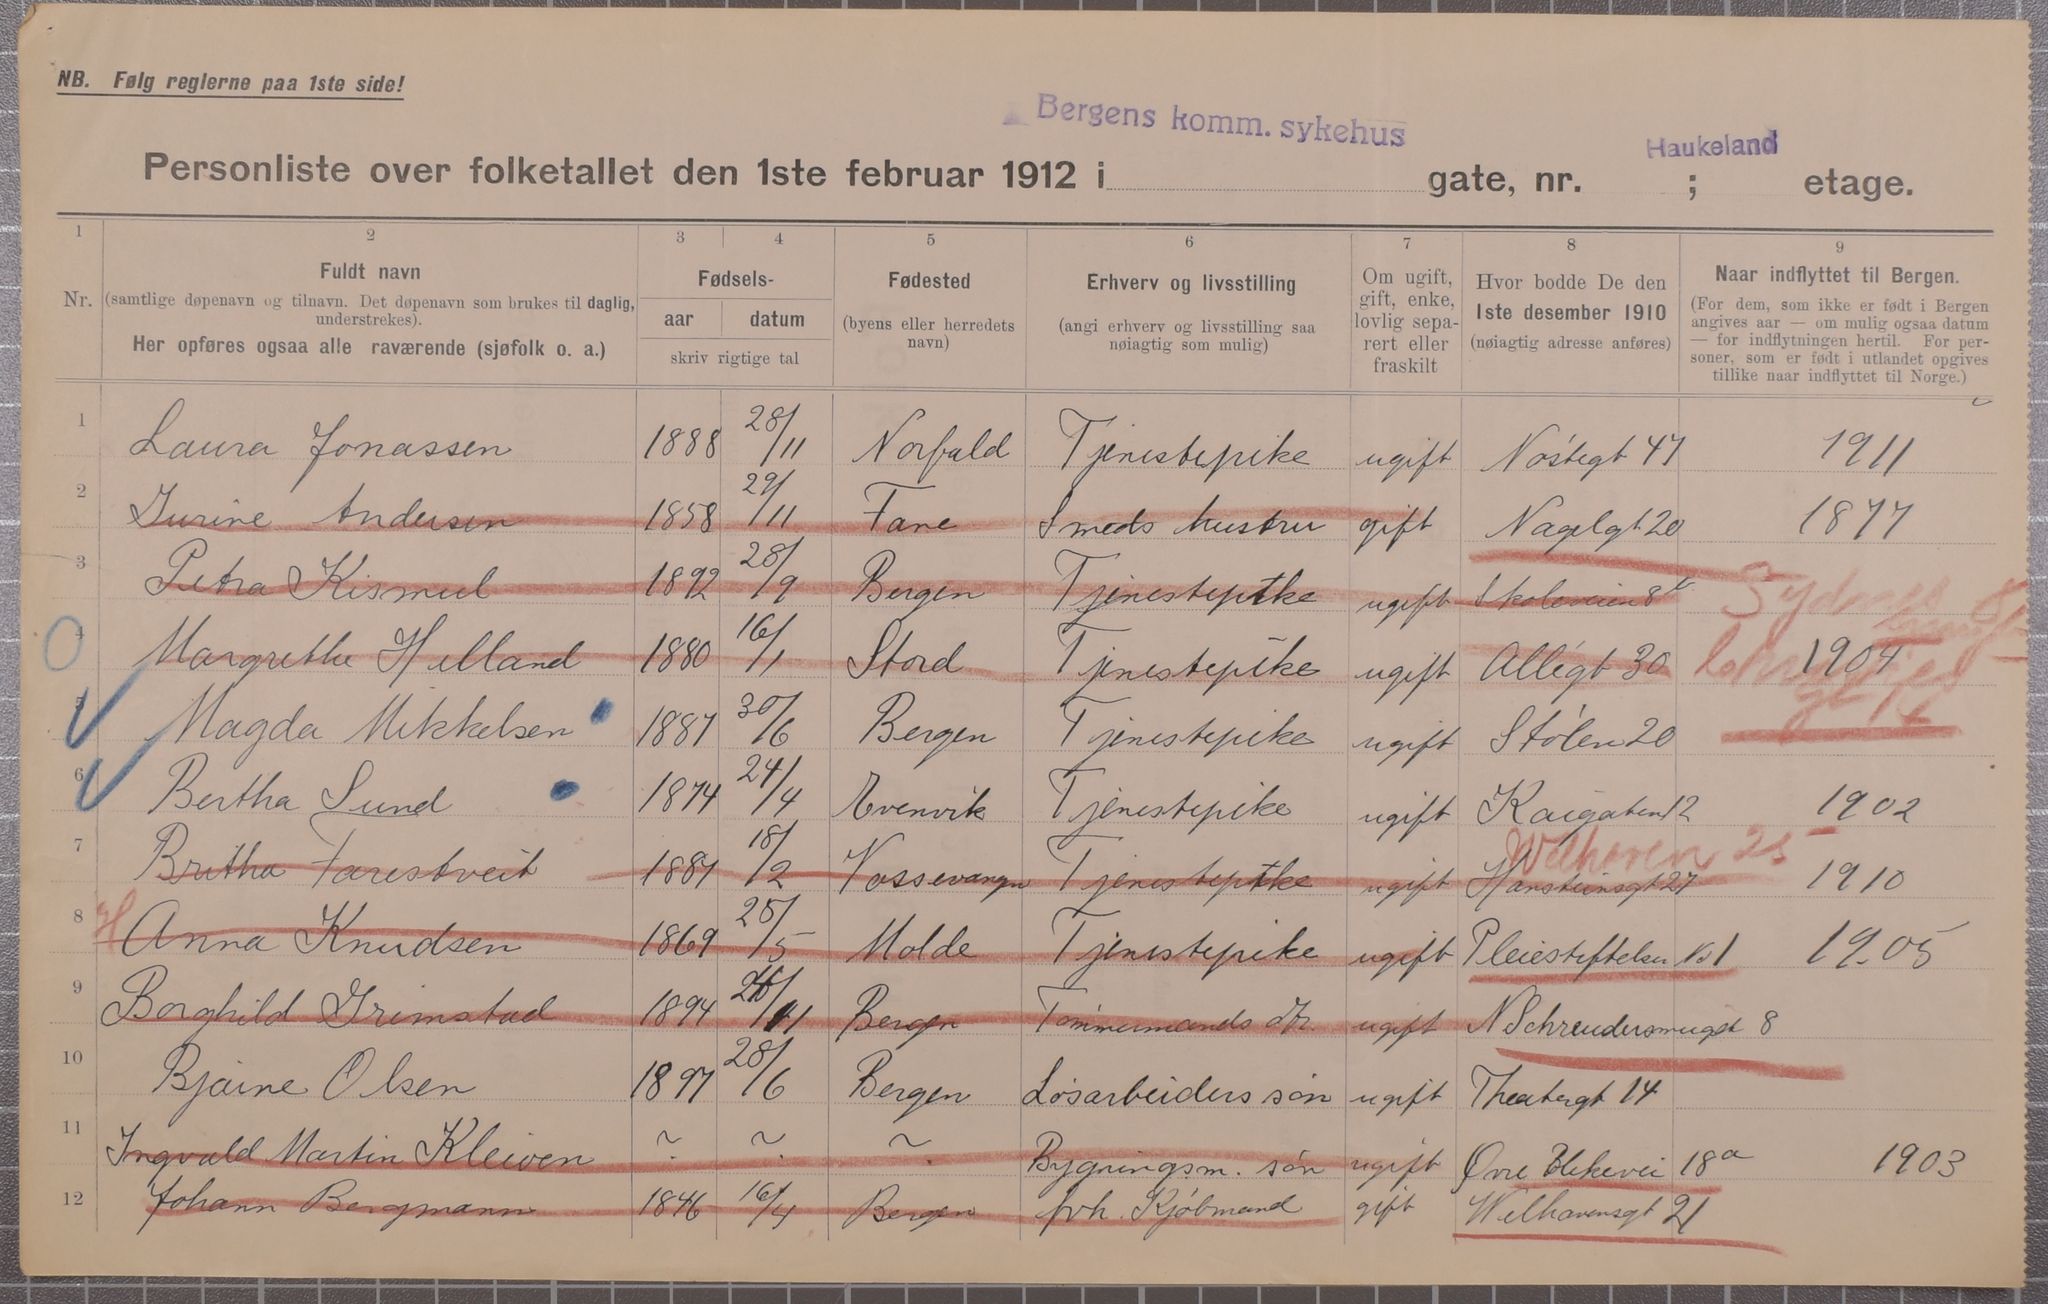 NB. Følg reglerne paa 1ste side!
Bergens komm. sykehus
Haukeland
Personliste over folketallet den 1ste februar 1912 i gate, nr. ; etage.
1 2 3 4 5 6 7 8 9
Nr.
Fuldt navn
(samtlige døpenavn og tilnavn. Det døpenavn som brukes til daglig, understrekes).
Her opføres ogsaa alle raværende (sjøfolk o. a.)
Fødsels-
aar datum
skriv rigtige tal
Fødested
(byens eller herredets navn)
Erhverv og livsstilling
(angi erhverv og livsstilling saa nøiagtig som mulig)
Om ugift, gift, enke, lovlig sepa-rert eller fraskilt
Hvor bodde De den 1ste desember 1910
(nøiagtig adresse anføres)
Naar indflyttet til Bergen.
(For dem, som ikke er født i Bergen angives aar — om mulig ogsaa datum — for indflytningen hertil. For per-soner, som er født i utlandet opgives tillike naar indflyttet til Norge.)
1 Laura Jonassen 1888 28/11 Norfald Tjenestepike ugift Nøstegt 47 1911
2 Gurine Andersen 1858 29/11 Fane Smeds hustru gift Nagelgt 20 1877
3 Petra Kismul 1892 28/9 Bergen Tjenestepike ugift Skoleveien 8
4 Margrethe Helland 1880 16/1 Stord Tjenestepike ugift Allégt 30 1904
5 Magda Mikkelsen 1887 30/6 Bergen Tjenestepike ugift Stølen 20
6 Bertha Sund 1874 24/4 Evenvik Tjenestepike ugift Kaigaten 12 1902
Welhaven 25
7 Britha Farestveit 1887 18/2 Vossevangn Tjenestepike ugift Hansteinsgt 27 1910
8 H Anna Knudsen 1869 25/5 Molde Tjenestepike ugift Pleiestiftelsen No 1 1905
9 Borghild Grimstad 1894 /11 Bergen Tømmermands dtr ugift N Schreudersmuget 8
10 Bjarne Olsen 1897 28/6 Bergen Løsarbeiders søn ugift Theatergt 14
11 Ingvald Martin Kleiven ~ ~ ~ Bygningsm. søn ugift Øvre Blekevei 18a 1903
12 Johann Bergmann 1846 16/4 Bergen fvh. Kjøbmand gift Welhavensgt 21